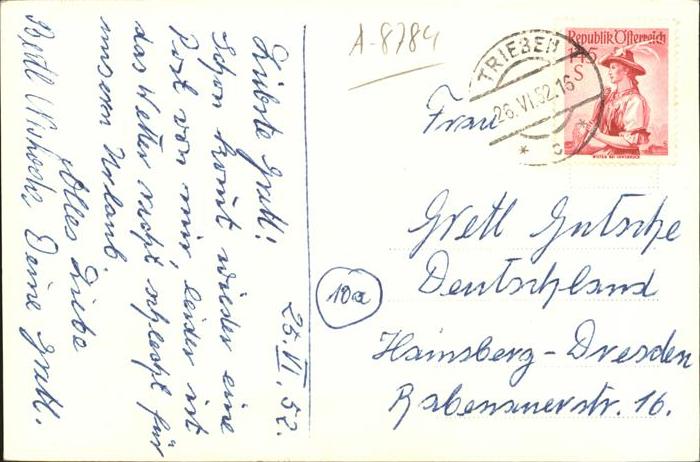 A-8784
Republik Österreich
1.45
S
WILTEN BEI INNSBRUCK
TRIEBEN
26.VI.52.16
* c *
Frau
Gretl Gutsche
Deutschland
Hainsberg-Dresden
Rabenauerstr. 16.
10a
25.VI.52.
Liebste Gretl!
Schon kommt wieder eine
Post von mir, leider ist
das Wetter nicht schlecht für
unseren Urlaub.
Alles Liebe
Deine Gretl.